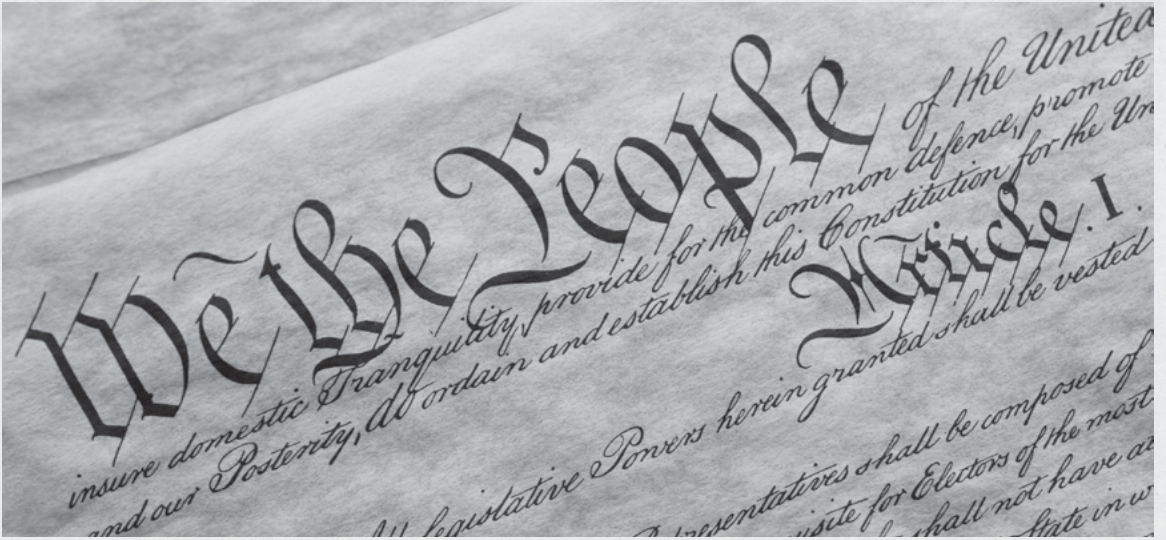 We the People of the United
insure domestic Tranquility, provide for the common defence, promote
and our Posterity, do ordain and establish this Constitution for the Un
Article. I.
All legislative Powers herein granted shall be vested
Representatives shall be composed of
uisite for Electors of the most
shall not have at
State in w